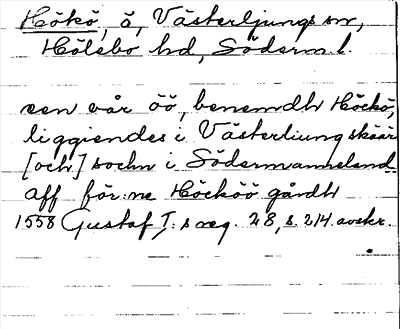 Hökö, ö, Västerljungs sn,
Hölebo hd, Söderm. l.
een vår öö, benemdh Höckö,
liggiendes i Västerliung skäär
[och] sochn i Södermanneland
aff för:ne Höcköö gårdh
1558 Gustaf I:s reg. 28, s. 214. avskr.